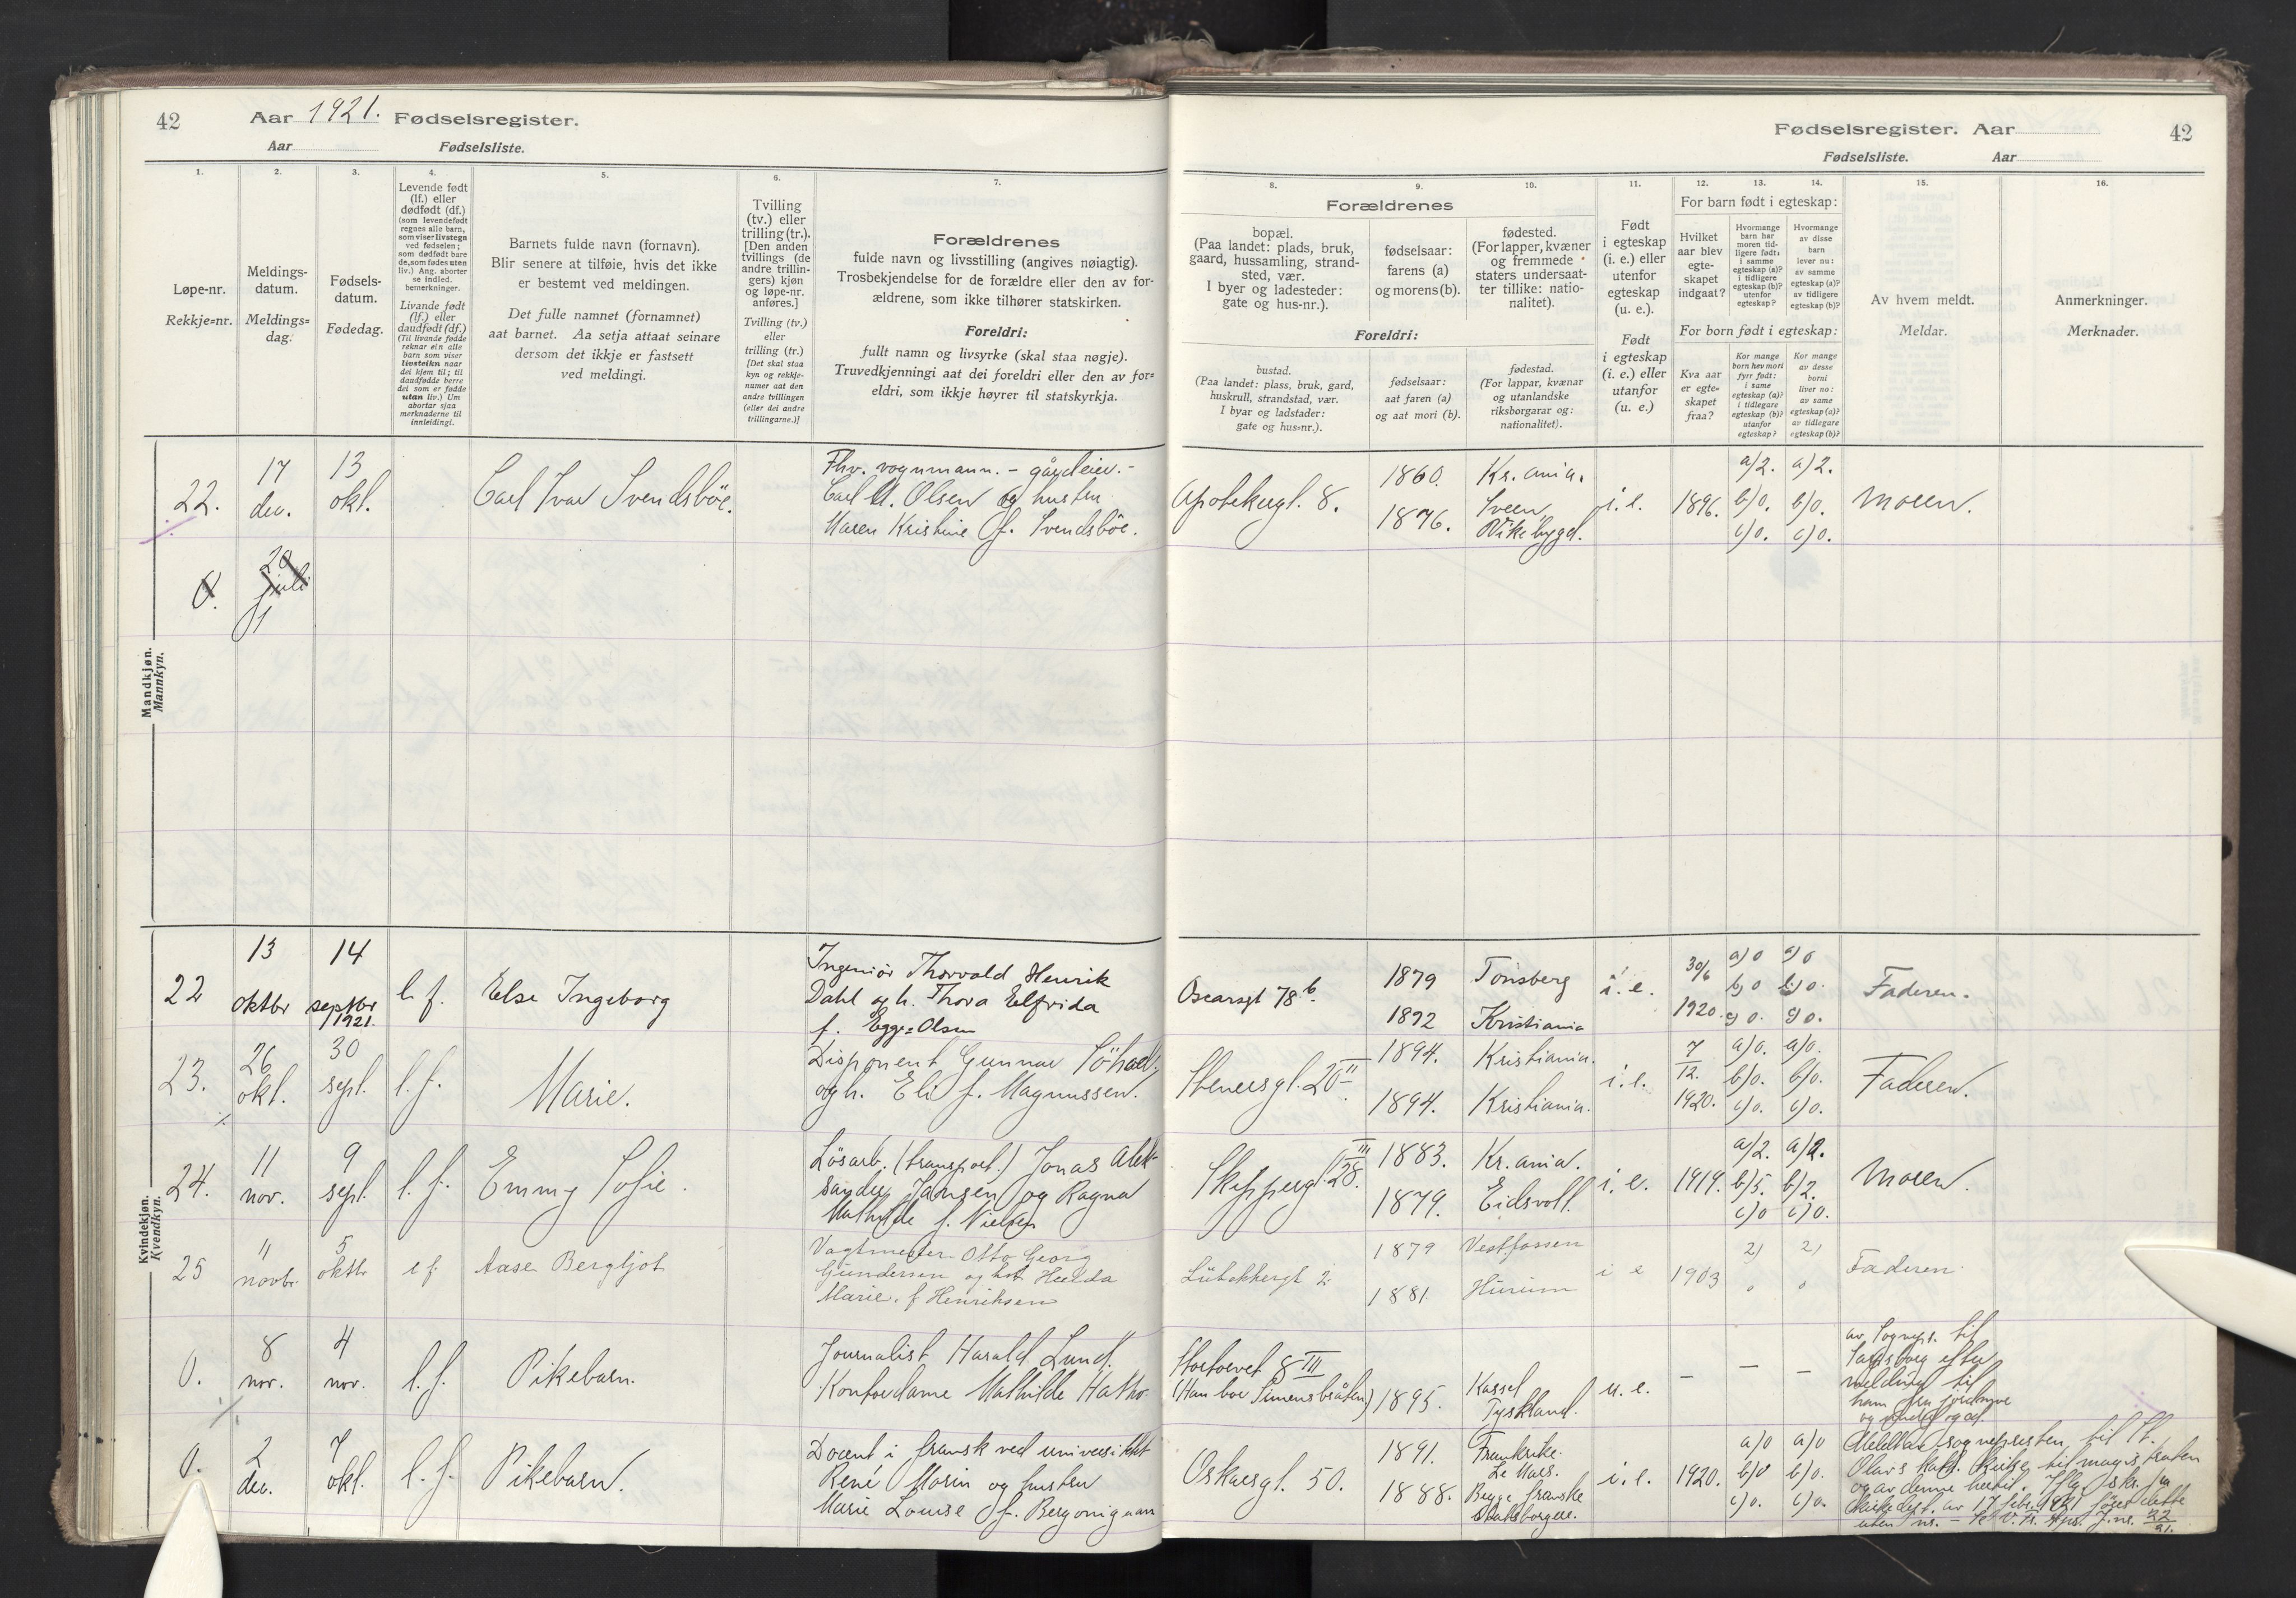 42
Aar 1921. Fødselsregister.
Aar Fødselsliste.
Fødselsregister. Aar
42
Fødselsliste. Aar
1.
Løpe-nr.
Rekkje=nr.
2.
Meldings-
datum.
Meldings=
dag.
3.
Fødsels-
datum.
Fødedag.
4.
Levende født
(lf.) eller
dødfødt (df.)
(som levendefødt
regnes alle barn,
som viser livstegn
ved fødselen;
som dødfødt bare
de, som fødes uten
liv.) Ang. aborter
se indled.
bemerkninger.
Livande født
(lf.) eller
daudfødt (df.)
(Til livande fødde
reknar ein alle
barn som viser
livsteikn naar
dei kjem til; til
daudfødde berre
dei som er fødde
utan liv.) Um
abortar sjaa
merknaderne til
innleidingi.
5.
Barnets fulde navn (fornavn).
Blir senere at tilføie, hvis det ikke
er bestemt ved meldingen.
Det fulle namnet (fornamnet)
aat barnet. Aa setja attaat seinare
dersom det ikkje er fastsett
ved meldingi.
6.
Tvilling
(tv.) eller
trilling (tr.).
[Den anden
tvillings (de
andre trillin-
gers) kjøn
og løpe-nr.
anføres.]
Tvilling (tv.)
eller
trilling (tr.)
[Det skal staa
kyn og rekkje-
numer aat den
andre tvillingen
(eller dei andre
trillingarne.)]
7.
Forældrenes
fulde navn og livsstilling (angives nøiagtig).
Trosbekjendelse for de forældre eller den av for-
ældrene, som ikke tilhører statskirken.
Foreldri:
fullt namn og livsyrke (skal staa nøgje).
Truvedkjenningi aat dei foreldri eller den av for=
eldri, som ikkje høyrer til statskyrkja.
Forældrenes
8.
bopæl.
(Paa landet: plads, bruk,
gaard, hussamling, strand-
sted, vær.
I byer og ladesteder:
gate og hus-nr.).
9.
fødselsaar:
farens (a)
og morens (b).
10.
fødested.
(For lapper, kvæner
og fremmede
staters undersaat-
ter tillike: natio-
nalitet).
Foreldri:
bustad.
(Paa landet: plass, bruk, gard,
huskrull, strandstad, vær.
I byar og ladstader:
gate og hus=nr.).
fødselsaar:
aat faren (a)
og aat mori (b).
fødestad.
(For lappar, kvænar
og utanlandske
riksborgarar og:
nationalitet).
11.
Født
i egteskap
(i. e.) eller
utenfor
egteskap
(u. e.).
Født
i egteskap
(i. e.) eller
utanfor
(u. e.)
For barn født i egteskap:
12.
Hvilket
aar blev
egte-
skapet
indgaat?
13.
Hvormange
barn har
moren tid-
ligere født:
i samme
egteskap (a)?
i tidligere
egteskap (b)?
utenfor
egteskap?
14.
Hvormange
av disse
barn
lever nu:
av samme
egteskap (a)?
av tidligere
egteskap (b)?
For born født i egteskap:
Kva aar
er egte=
skapet
fraa?
Kor mange
born hev mori
fyrr født:
i same
egteskap (a)?
i tidlegare
egteskap (b)?
utanfor
egteskap?
Kor mange
av desse
borni
liver no:
av same
egteskap (a)?
av tidlegare
egteskap (b)?
15.
Av hvem meldt.
Meldar.
16.
Anmerkninger.
Merknader.
Mandkjøn.
Mannkyn.
22.
17
dec.
13
okt.
Carl Ivar Svendsböe.
Fhv. vognmann. - gårdeier. -
Carl M. Olsen og hustru
Maren Kristine f. Svendsböe.
Apotekergt. 8.
1860.
1876.
Kr.ania.
Sveen
Vikebygd.
i. e.
1896.
a)2.
b)0.
c)0.
a)2.
b)0.
c)0.
Moren.
0.
20
juli
Kvindekjøn.
Kvendkyn.
22
13
oktbr
14
septbr
1921.
l. f.
Else Ingeborg
Ingeniör Thorvald Henrik
Dahl og h. Thora Elfrida
f. Egge=Olsen
Oscarsgt 78 b.
1879
1892
Tönsberg
Kristiania
i. e.
30/6
1920.
a) 0
b) 0
c) 0.
a) 0
b) 0.
c) 0.
Faderen.
23.
26
okt.
30
sept.
l. f.
Marie.
Disponent Gunnar
og h. Eli f. Magnussen.
Stenersgt. 20 II
1894.
1894.
Kristiania.
Kristiania.
i. e.
7
12.
1920.
a)0.
b)0.
c)0.
a)0.
b)0.
c)0.
Faderen.
24.
11
nov.
9
sept.
l. f.
Emmy Sofie.
Lösarb. (transport.) Jonas Alek-
sander Jansen og Ragna
Mathilde f. Nielsen
Skippergt. 28. III
1883.
1879.
Kr.ania.
Eidsvoll.
i. e.
1919.
a)2.
b)5.
c)0
a)2.
b)2.
c)0.
Moren.
25
11
novbr.
5
oktbr
l f.
Aase Bergljot
Vagtmester Otto Georg
Gundersen og hst. Hulda
Marie. f Henriksen
Lübekkergt 2.
1879
1881
Vestfossen
Hurum
i e
1903
2)
0
2)
0
Faderen.
0.
8
nov.
4
nov.
l. f.
Pikebarn.
Journalist Harald Lund.
Kontordame Mathilde
Stortorvet 8 III
(Han bor Simensbråten)
1895.
Kassel
Tyskland.
u. e.
—
—
—
av Sognepr. til
Sarpsborg efter
melding til
ham fra jordmor
0.
2
dec.
7
okt.
l. f.
Pikebarn.
Docent i fransk ved universitetet
René Marin og hustru
Marie Louise f. Bergougnan
Oskarsgt. 50.
1891.
1888.
Frankrike.
Le Mans.
Begge franske
statsborgere.
i. e.
1920.
a)0
b)0
c)0.
a)0
b)0.
c)0.
Meldt av sognepresten til St.
Olavs kath. kirke til magistraten
og av denne hertil. Iflg. skr. fra
Kirkedept. av 17 febr. 1921 föres dette
uten nr. - J.nr. 22
21.